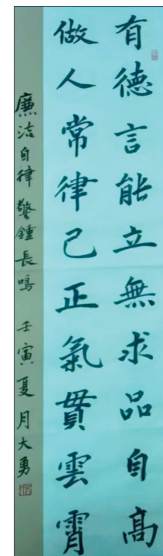 有德言能立無求品自高
做人常律己正氣貫雲霄
廉洁自律警鍾長鳴 壬寅夏月大勇